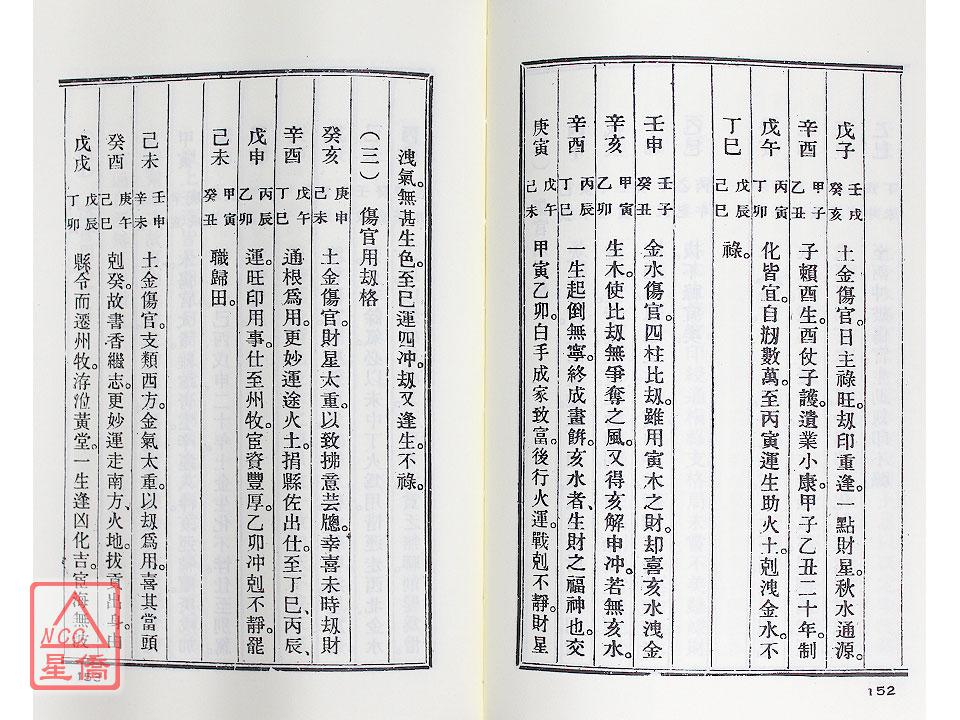 戊子 壬戌 癸亥 土金傷官。日主祿旺。刼印重逢。一點財星。秋水通源。
辛酉 甲子 乙丑 子賴酉生。酉仗子護。遺業小康。甲子乙丑二十年。制
戊午 丙寅 丁卯 化皆宜。自刱數萬。至丙寅運。生助火土。剋洩金水。不
丁巳 戊辰 己巳 祿。
壬申 壬子 癸丑 金水傷官。四柱比刼。雖用寅木之財。却喜亥水洩金
辛亥 甲寅 乙卯 生木。使比刼無爭奪之風。又得亥解申冲。若無亥水。
辛酉 丙辰 丁巳 一生起倒無寧。終成畫餅。亥水者、生財之福神也。交
庚寅 戊午 己未 甲寅乙卯。白手成家致富。後行火運。戰剋不靜。財星
152
洩氣。無甚生色。至巳運四冲。刼又逢生。不祿。
（三） 傷官用刼格
癸亥 庚申 己未 土金傷官。財星太重。以致拂意芸牕。幸喜未時刼財
辛酉 戊午 丁巳 通根爲用。更妙運途火土。捐縣佐出仕。至丁巳、丙辰
戊申 丙辰 乙卯 運。旺印用事。仕至州牧。宦資豐厚。乙卯冲剋不靜。罷
己未 甲寅 癸丑 職歸田。
己未 壬申 辛未 土金傷官。支類西方。金氣太重。以刼爲用。喜其當頭
癸酉 庚午 己巳 剋癸。故書香繼志。更妙運走南方、火地。拔貢出身。由
戊戌 戊辰 丁卯 縣令而遷州牧。洊涖黃堂。一生逢凶化吉。宦海無波
153
NCC
星僑